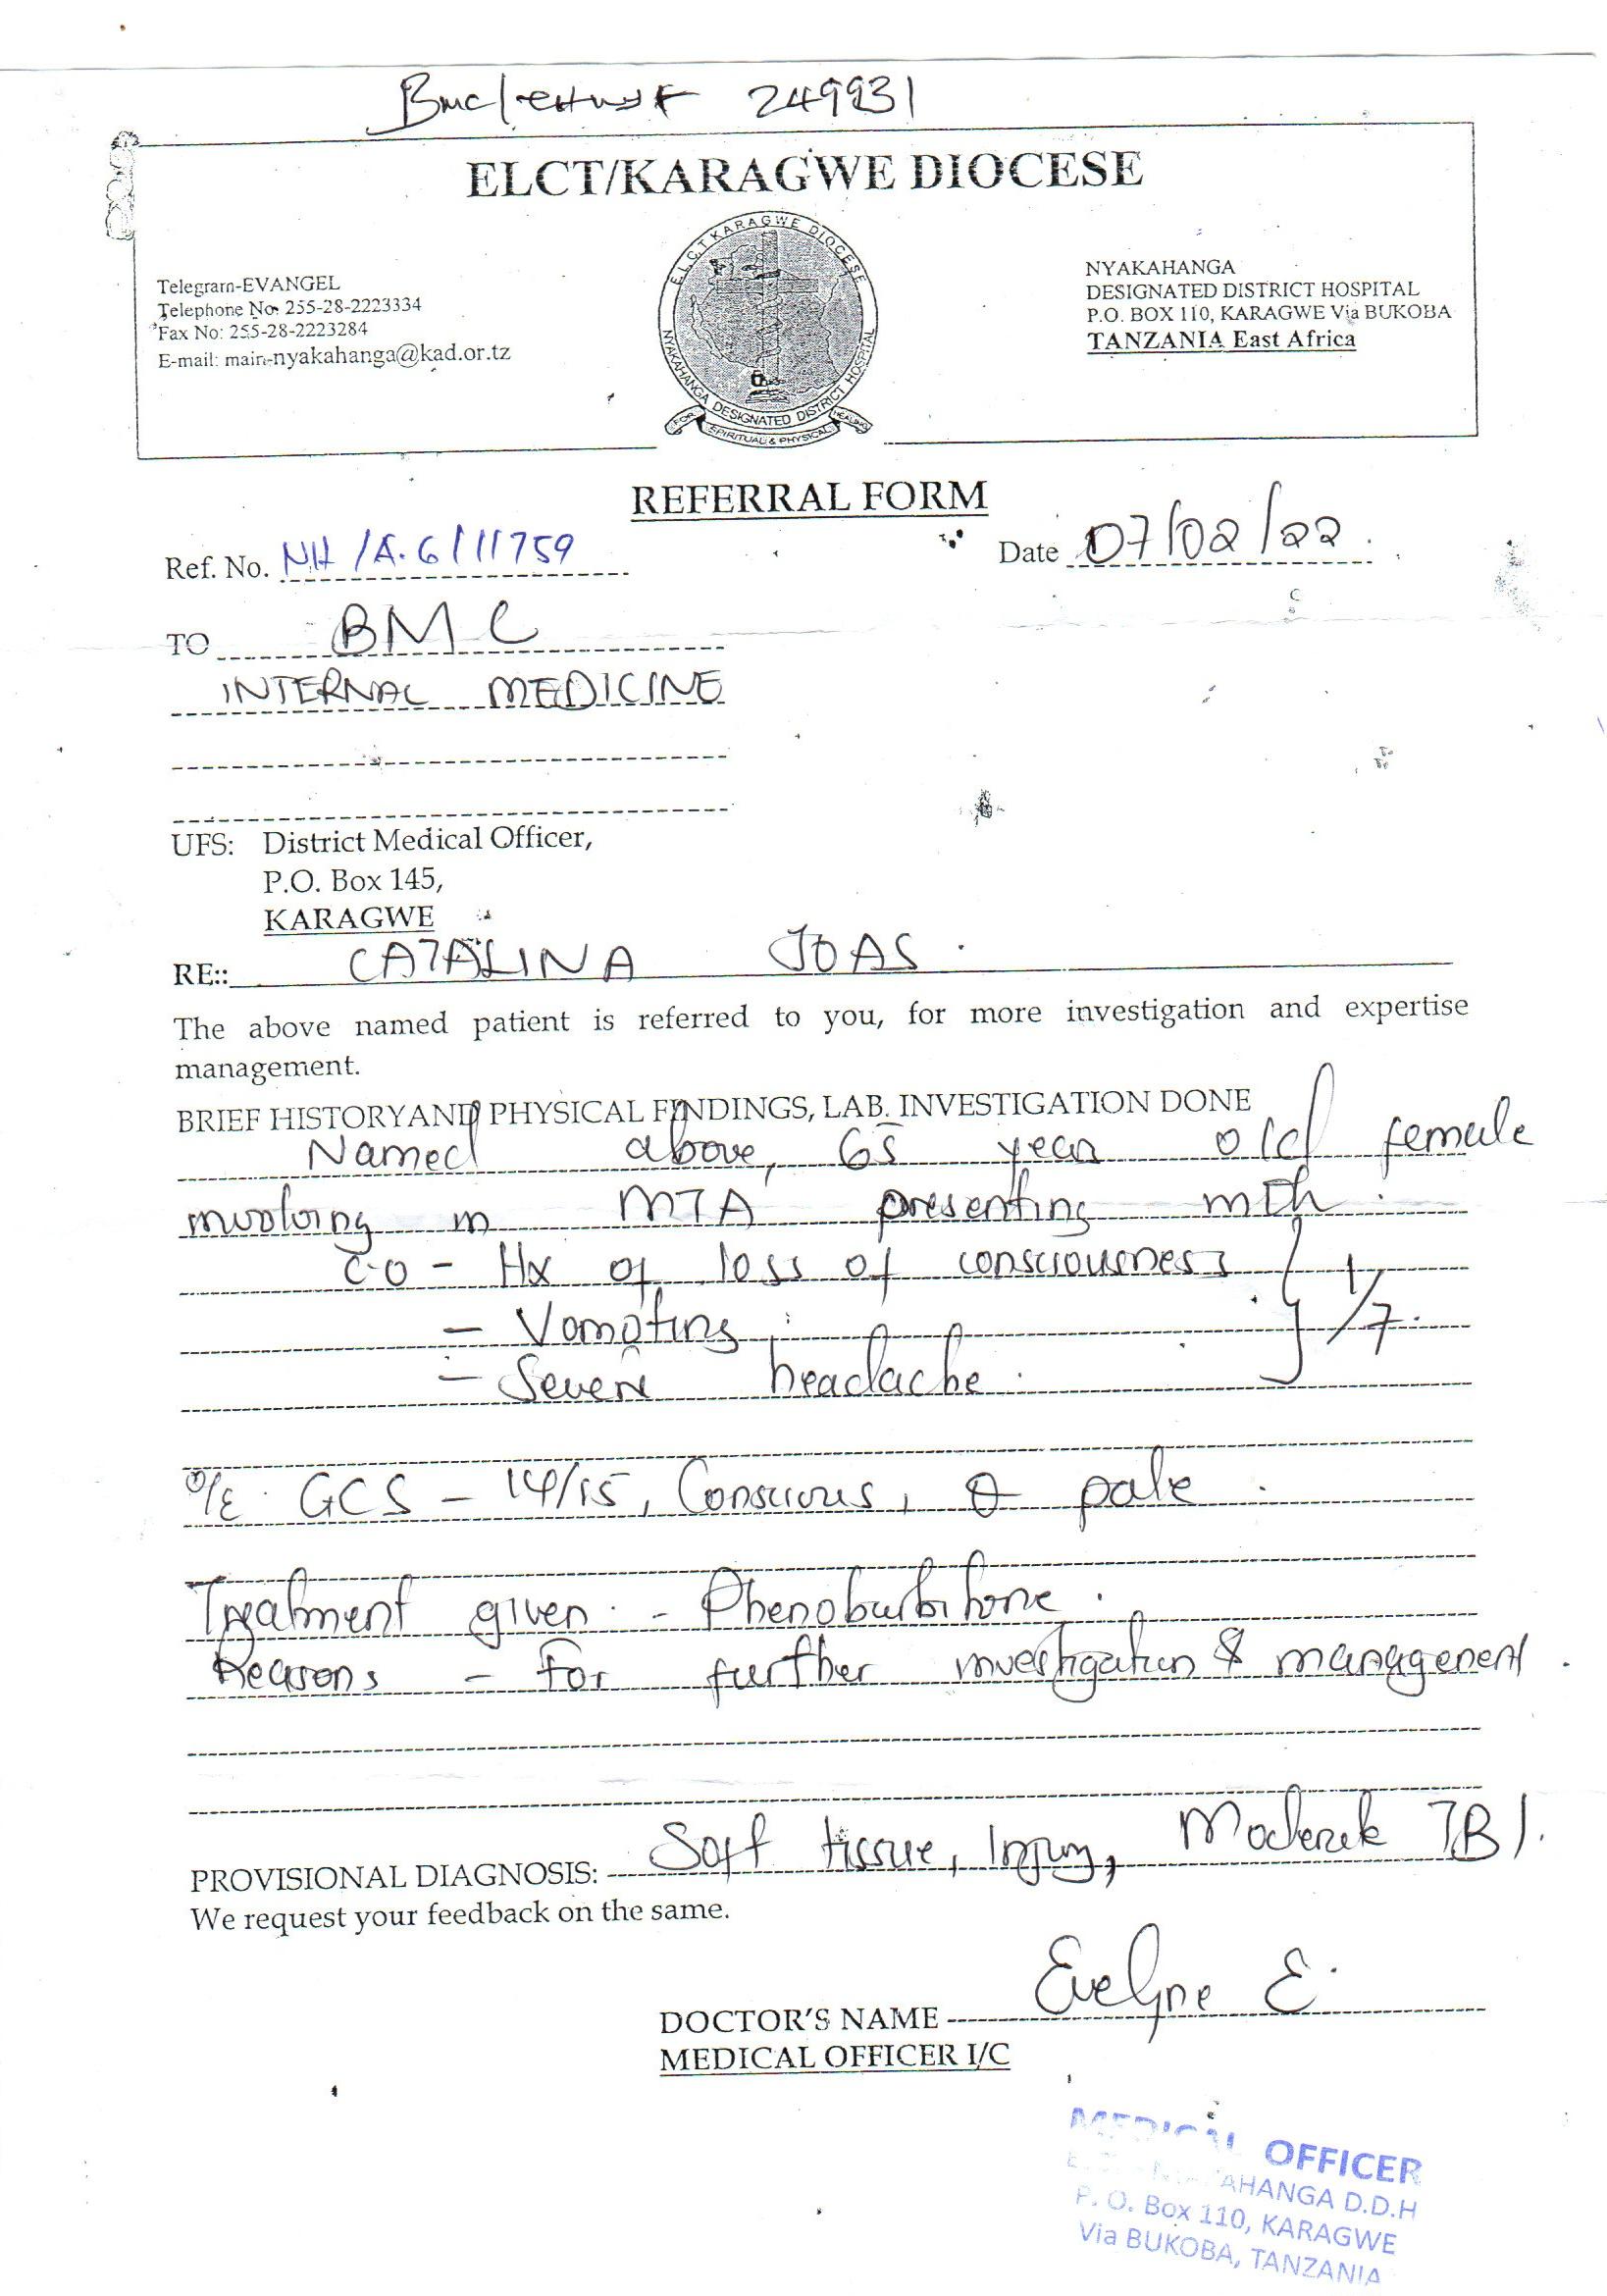 249931
ELCT/KARAGWE DIOCESE
Telegram-EVANGEL
Telephone No: 255-28-2223334
Fax No: 255-28-2223284
E-mail: main-nyakahanga@kad.or.tz
E.L.C.T KARAGWE DIOCESE
NYAKAHANGA DESIGNATED DISTRICT HOSPITAL
FOR SPIRITUAL & PHYSICAL HEALING
NYAKAHANGA
DESIGNATED DISTRICT HOSPITAL
P.O. BOX 110, KARAGWE Via BUKOBA
TANZANIA East Africa
REFERRAL FORM
Ref. No. NH/A.6/11759
Date 07/02/22.
TO BMC
INTERNAL MEDICINE
UFS: District Medical Officer,
P.O. Box 145,
KARAGWE
RE:: CATALINA JOAS.
The above named patient is referred to you, for more investigation and expertise
management.
BRIEF HISTORY AND PHYSICAL FINDINGS, LAB. INVESTIGATION DONE
Named above, 65 year old female
involving in MTA presenting with
C.O - Hx of loss of consciousness
- Vomiting 1/7.
- Severe headache.
O/E. GCS - 14/15, Conscious, pale.
Treatment given. - Phenobarbitone.
Reasons - For further investigation & management.
PROVISIONAL DIAGNOSIS: Soft tissue, Injury, Moderate TBI.
We request your feedback on the same.
DOCTOR'S NAME Evelyne E.
MEDICAL OFFICER I/C
MEDICAL OFFICER
AHANGA D.D.H
P. O. Box 110, KARAGWE
Via BUKOBA, TANZANIA